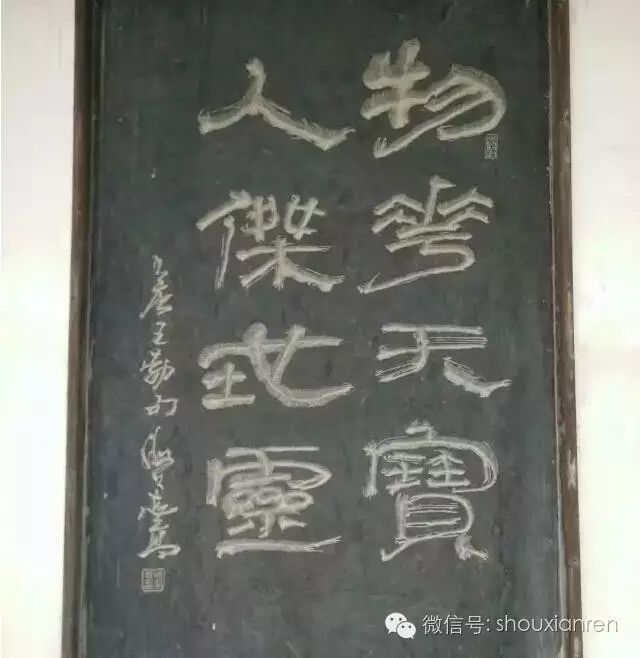 物華天寶
人傑地靈
微信号: shouxianren